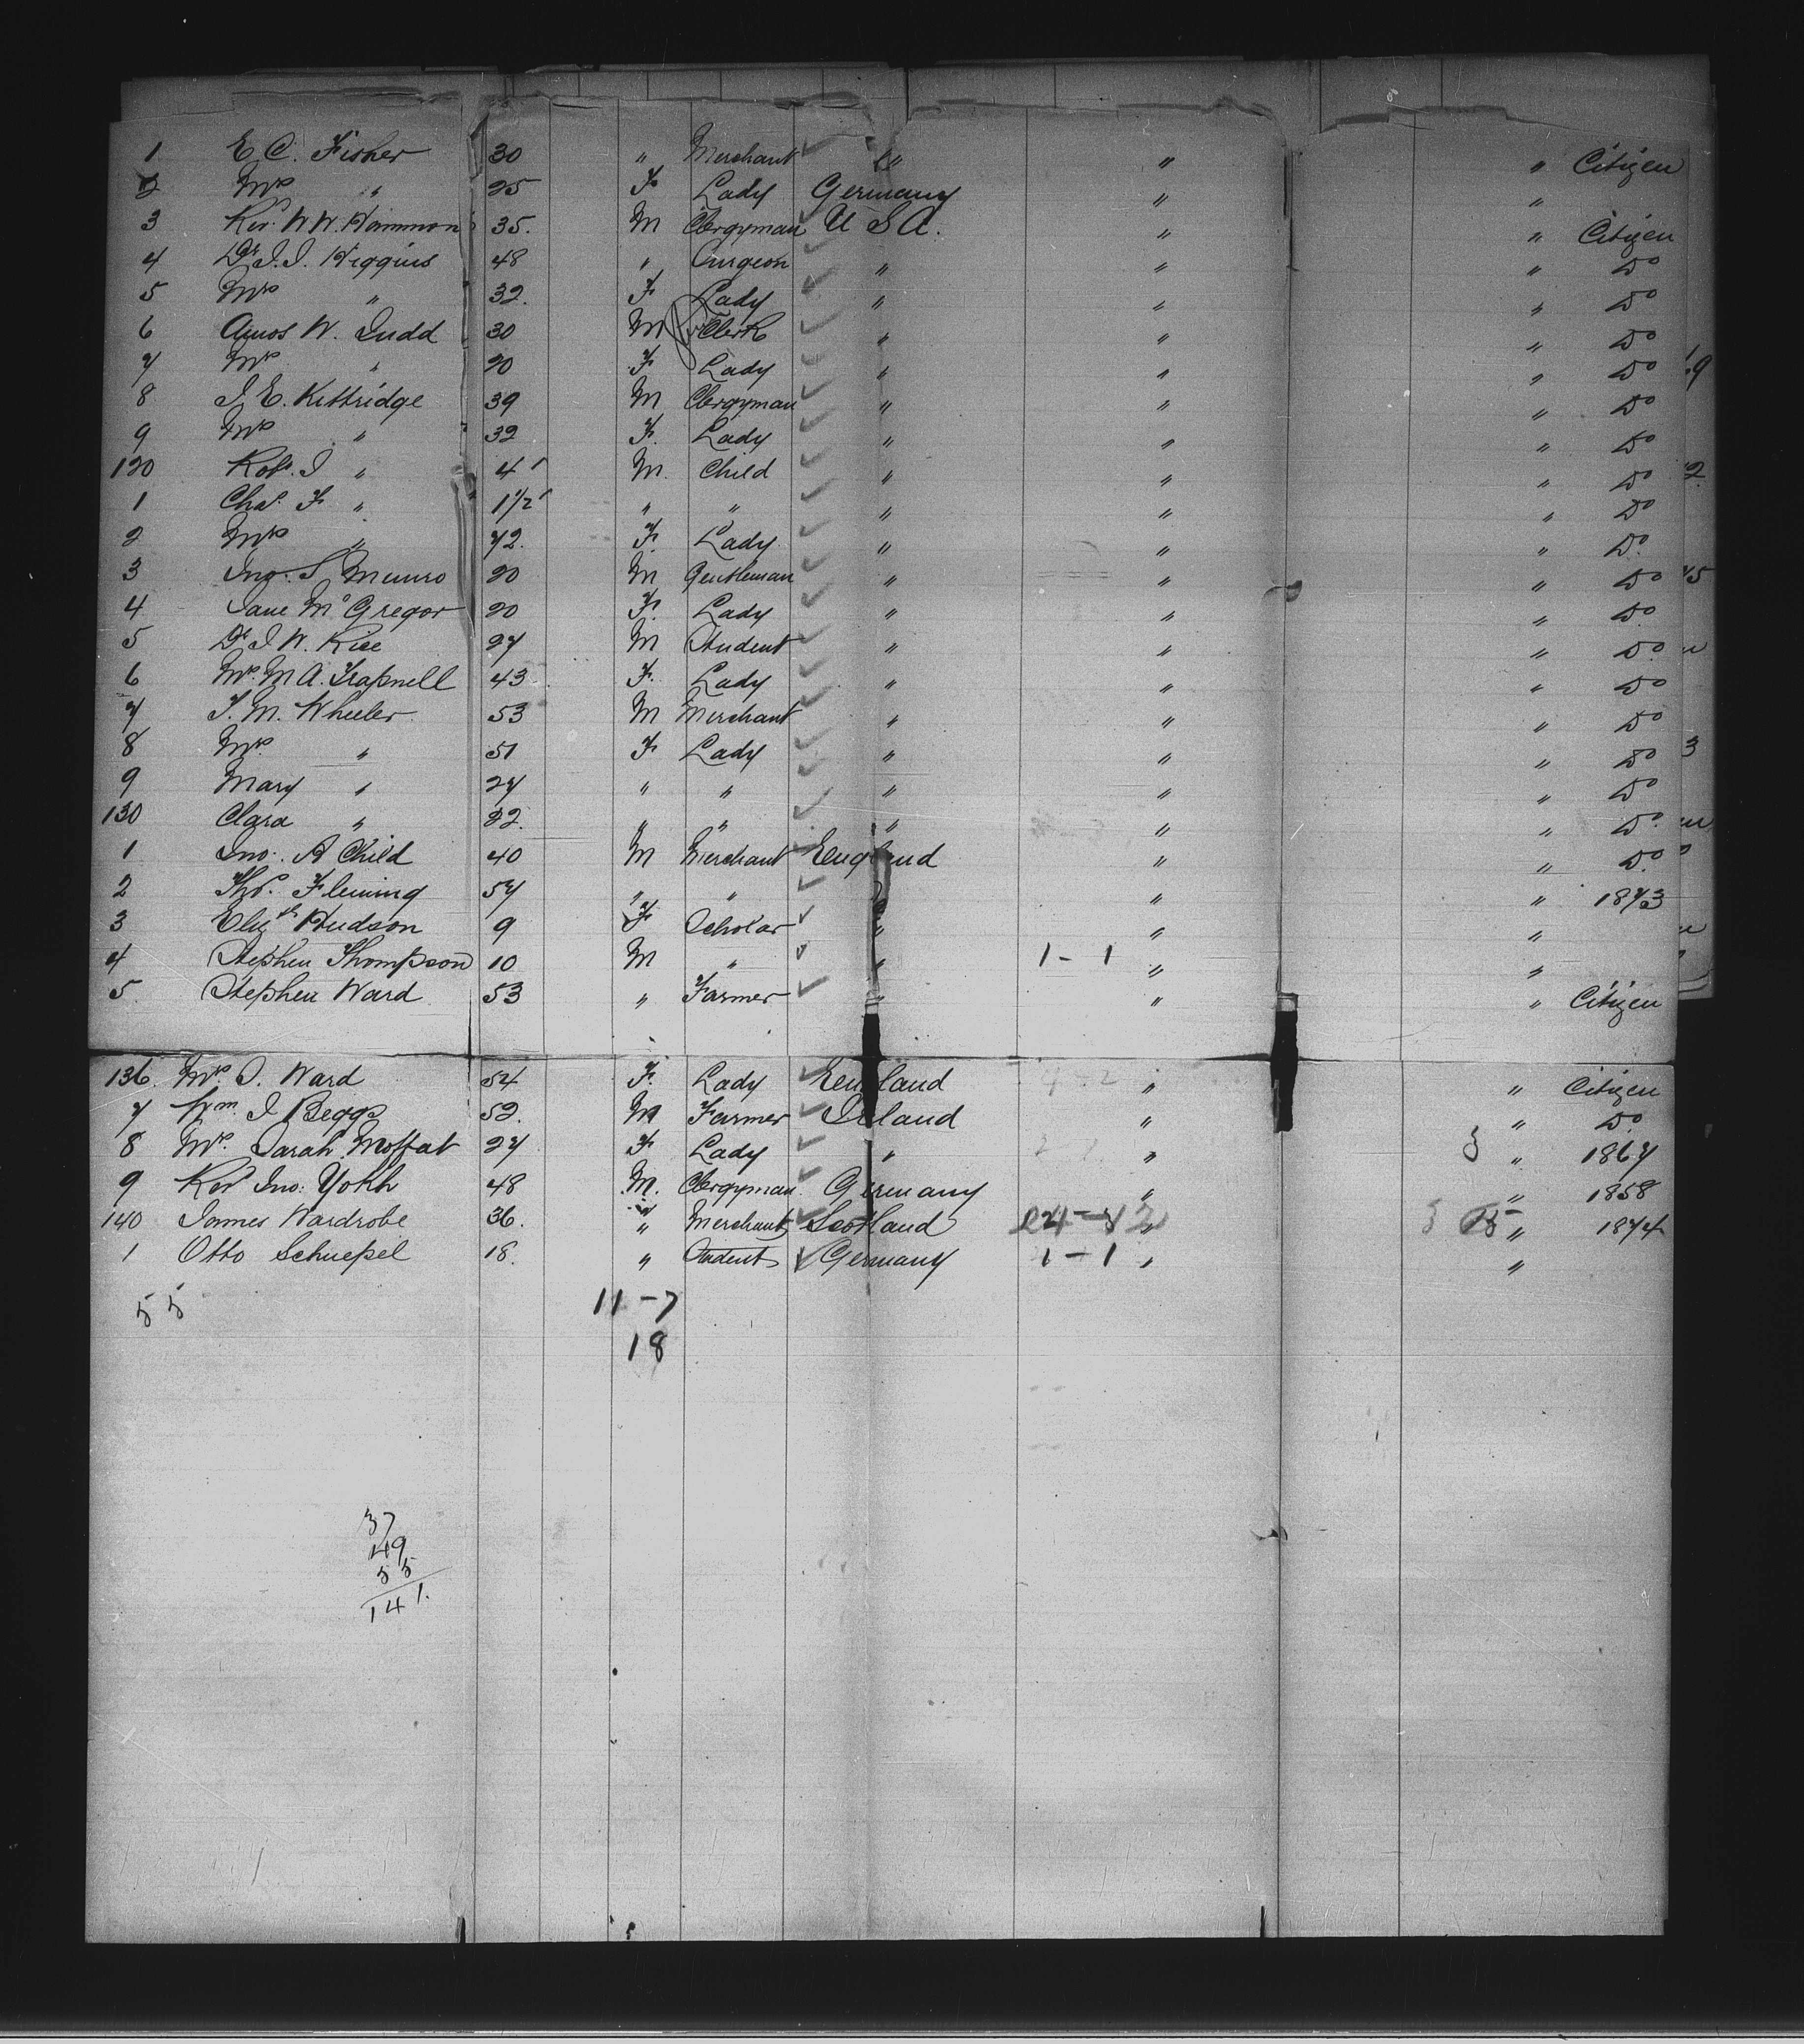 1 E. C. Fisher 30 " Merchant " " " Citizen
2 Mrs " 25 F Lady Germany " "
3 Rev. W W. Hammon 35. M Clergyman U S A. " " Citizen
4 Dr J. J. Higgins 48 " Surgeon " " " Do
5 Mrs " 32. F Lady " " " Do
6 Amos W. Judd 30 M Clerk " " " Do
7 Mrs " 20 F Lady " " " Do
8 J. E. Kittridge 39 M Clergyman " " " Do
9 Mrs " 32 F. Lady " " " Do
120 Robt. J " 4 M. Child " " " Do
1 Chas. F " 1 1/2 " " " " " Do
2 Mrs " 72. F. Lady " " " Do.
3 Jno. S Munro 20 M Gentleman " " " Do
4 Jane McGregor 20 F. Lady " " " Do.
5 Dr J. W. Rice 27 M Student " " " Do.
6 Mrs. M A. Trapnell 43 F. Lady " " " Do
7 T. M. Wheeler 53 M Merchant " " " Do
8 Mrs. " 51 F Lady " " " Do
9 Mary " 24 " " " " " Do
130 Clara " 22. " " " " " Do.
1 Jno. A Child 40 M Merchant England " " Do.
2 Thos. Fleming 57 " " " " 1873
3 Elizth Hudson 9 F Scholar " " "
4 Stephen Thompson 10 M " " 1 - 1 " "
5 Stephen Ward 53 " Farmer " " " Citizen
136. Mrs. S. Ward 54 F. Lady England " " Citizen
7 Wm. J Beggs 52. M Farmer Ireland " " Do.
8 Mrs. Sarah Moffat 27 F Lady " " " 1867
9 Rev Jno: Yokh 48 M. Clergyman Germany " " 1858
140 James Wardrobe 36. " Merchant Scotland " " 1874
1 Otto Schuepel 18. " Student Germany 1 - 1 " "
55
11 - 7
18
37
49
55
141.